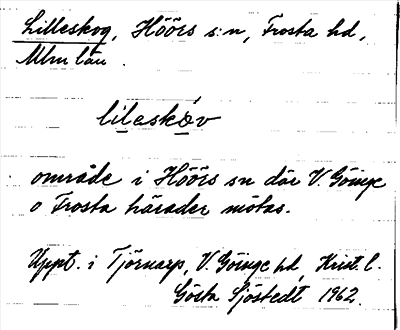 Lilleskog, Höörs s:n, Frosta hd,
Mlm län.
lileskóv
område i Höörs sn där V. Göinge
o Frosta härader mötas.
Uppt. i Tjörnarp, V. Göinge hd, Krist. l.
Gösta Sjöstedt 1962.